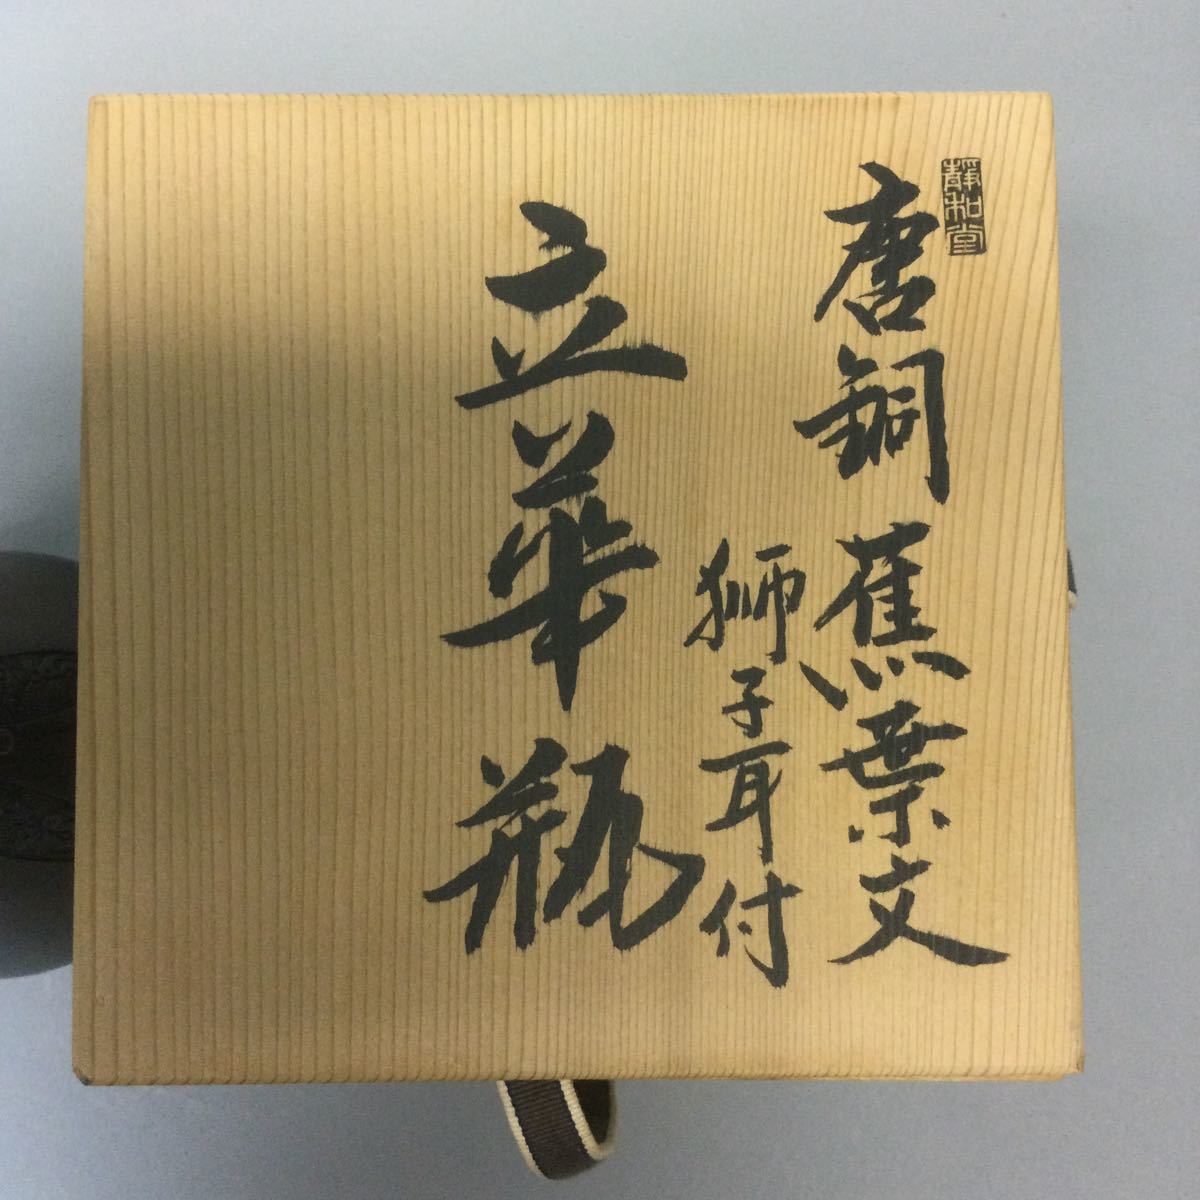 靜和堂
唐銅 蕉葉文
獅子耳付
立華瓶